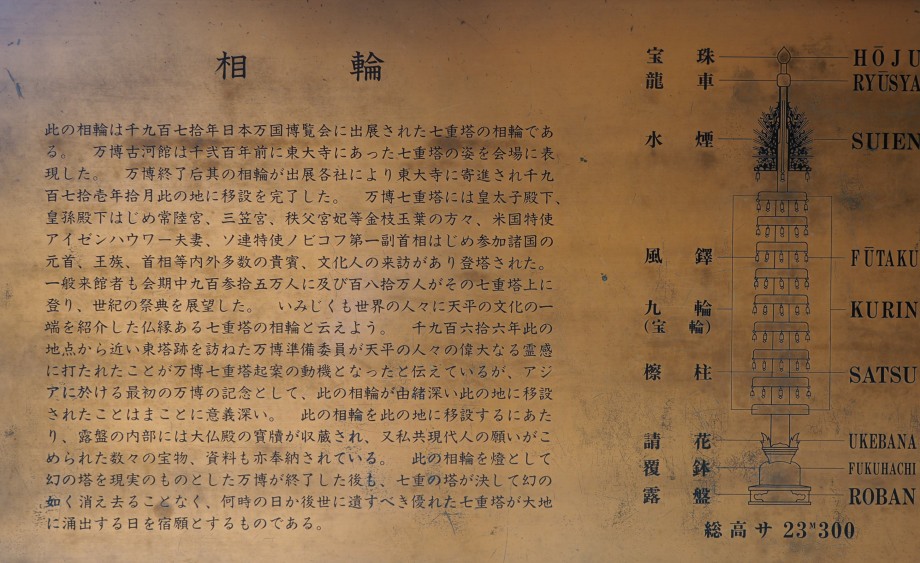 相輪
此の相輪は千九百七拾年日本万国博覧会に出展された七重塔の相輪であ
る。 万博古河館は千弐百年前に東大寺にあった七重塔の姿を会場に表
現した。 万博終了后其の相輪が出展各社により東大寺に寄進され千九
百七拾壱年拾月此の地に移設を完了した。 万博七重塔には皇太子殿下、
皇孫殿下はじめ常陸宮、三笠宮、秩父宮妃等金枝玉葉の方々、米国特使
アイゼンハウワー夫妻、ソ連特使ノビコフ第一副首相はじめ参加諸国の
元首、王族、首相等内外多数の貴賓、文化人の来訪があり登塔された。
一般来館者も会期中九百参拾五万人に及び百八拾万人がその七重塔上に
登り、世紀の祭典を展望した。 いみじくも世界の人々に天平の文化の一
端を紹介した仏縁ある七重塔の相輪と云えよう。 千九百六拾六年此の
地点から近い東塔跡を訪ねた万博準備委員が天平の人々の偉大なる霊感
に打たれたことが万博七重塔起案の動機となったと伝えているが、アジ
アに於ける最初の万博の記念として、此の相輪が由緒深い此の地に移設
されたことはまことに意義深い。 此の相輪を此の地に移設するにあた
り、露盤の内部には大仏殿の寶牘が収蔵され、又私共現代人の願いがこ
められた数々の宝物、資料も亦奉納されている。 此の相輪を燈として
幻の塔を現実のものとした万博が終了した後も、七重の塔が決して幻の
如く消え去ることなく、何時の日か後世に遺すべき優れた七重塔が大地
に涌出する日を宿願とするものである。
宝珠 HŌJU
龍車 RYŪSYA
水煙 SUIEN
風鐸 FŪTAKU
九輪 KURIN
(宝輪)
檫柱 SATSU
請花 UKEBANA
覆鉢 FUKUHACHI
露盤 ROBAN
総高サ 23ᴹ300